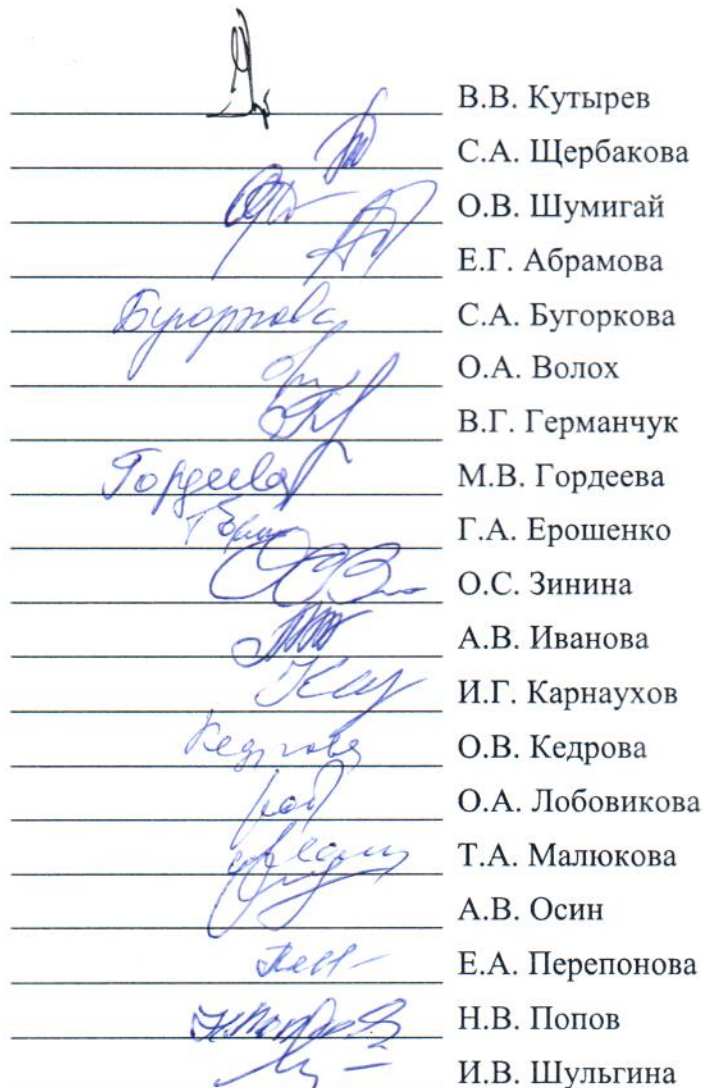 В.В. Кутырев
С.А. Щербакова
О.В. Шумигай
Е.Г. Абрамова
Бугоркова С.А. Бугоркова
О.А. Волох
В.Г. Германчук
Гордеева М.В. Гордеева
Г.А. Ерошенко
О.С. Зинина
А.В. Иванова
И.Г. Карнаухов
Кедрова О.В. Кедрова
О.А. Лобовикова
Т.А. Малюкова
А.В. Осин
Е.А. Перепонова
Н.В. Попов
И.В. Шульгина